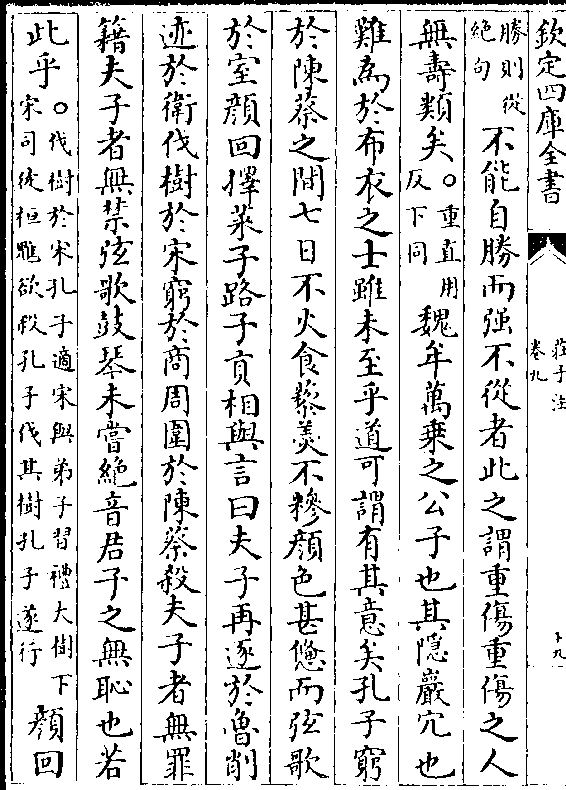 欽定四庫全書
莊子注
卷九
十九
勝則從
絶句
不能自勝而强不從者此之謂重傷重傷之人
無壽類矣○重直用
反下同
魏牟萬乗之公子也其隱巖穴也
難為於布衣之士雖未至乎道可謂有其意矣孔子窮
於陳蔡之間七日不火食藜羮不糝顔色甚憊而弦歌
於室顔回擇菜子路子貢相與言曰夫子再逐於魯削
迹於衛伐樹於宋窮於商周圍於陳蔡殺夫子者無罪
籍夫子者無禁弦歌鼓琴未嘗絶音君子之無恥也若
此乎○伐樹於宋孔子適宋與弟子習禮大樹下
宋司徒桓魋欲殺孔子伐其樹孔子遂行
顔回